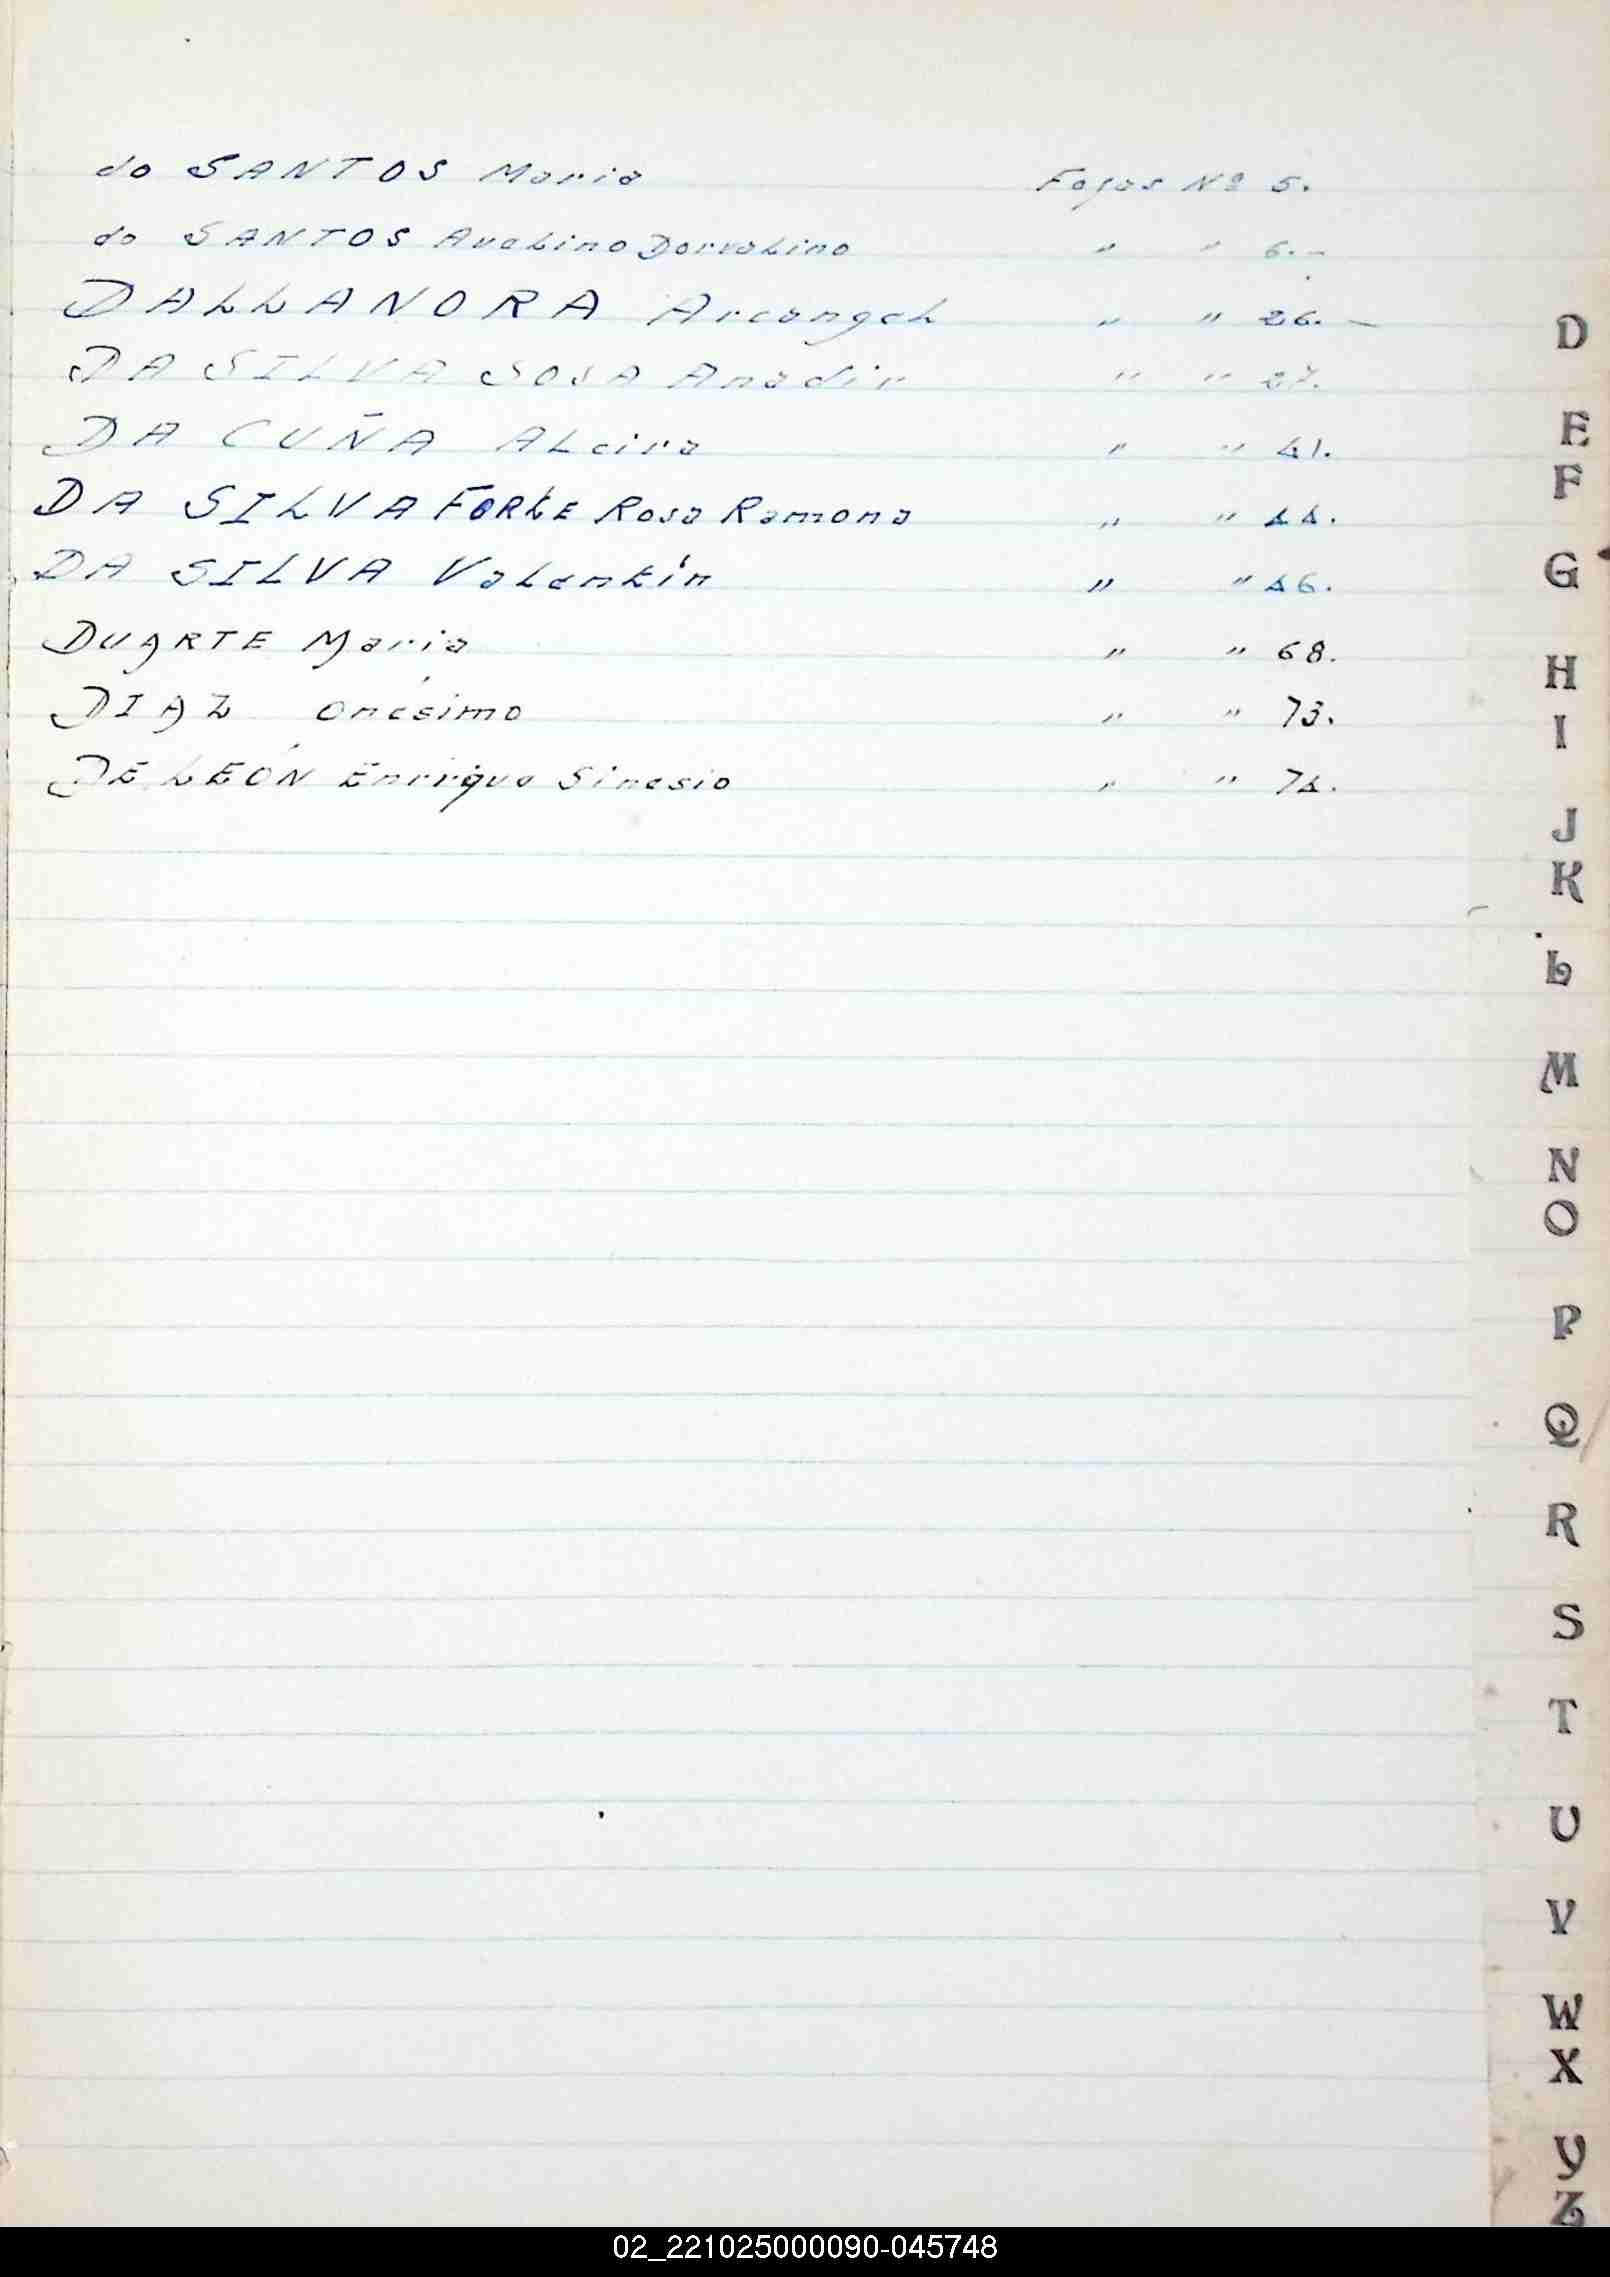 do SANTOS Maria Fojas Nº 5.
do SANTOS Avelino Dorvalino " " 6.-
DALLANORA Arcangel " " 26.-
DA SILVA SOSA Anadir " " 27.
DA CUÑA Alcira " " 41.
DA SILVA FORLE Rosa Ramona " " 44.
DA SILVA Valentín " " 46.
DUARTE Maria " " 68.
DIAZ Onésimo " " 73.
DE LEÓN Enrique Sinesio " " 74.
D
E
F
G
H
I
J
K
L
M
N
O
P
Q
R
S
T
U
V
W
X
Y
Z
02_221025000090-045748